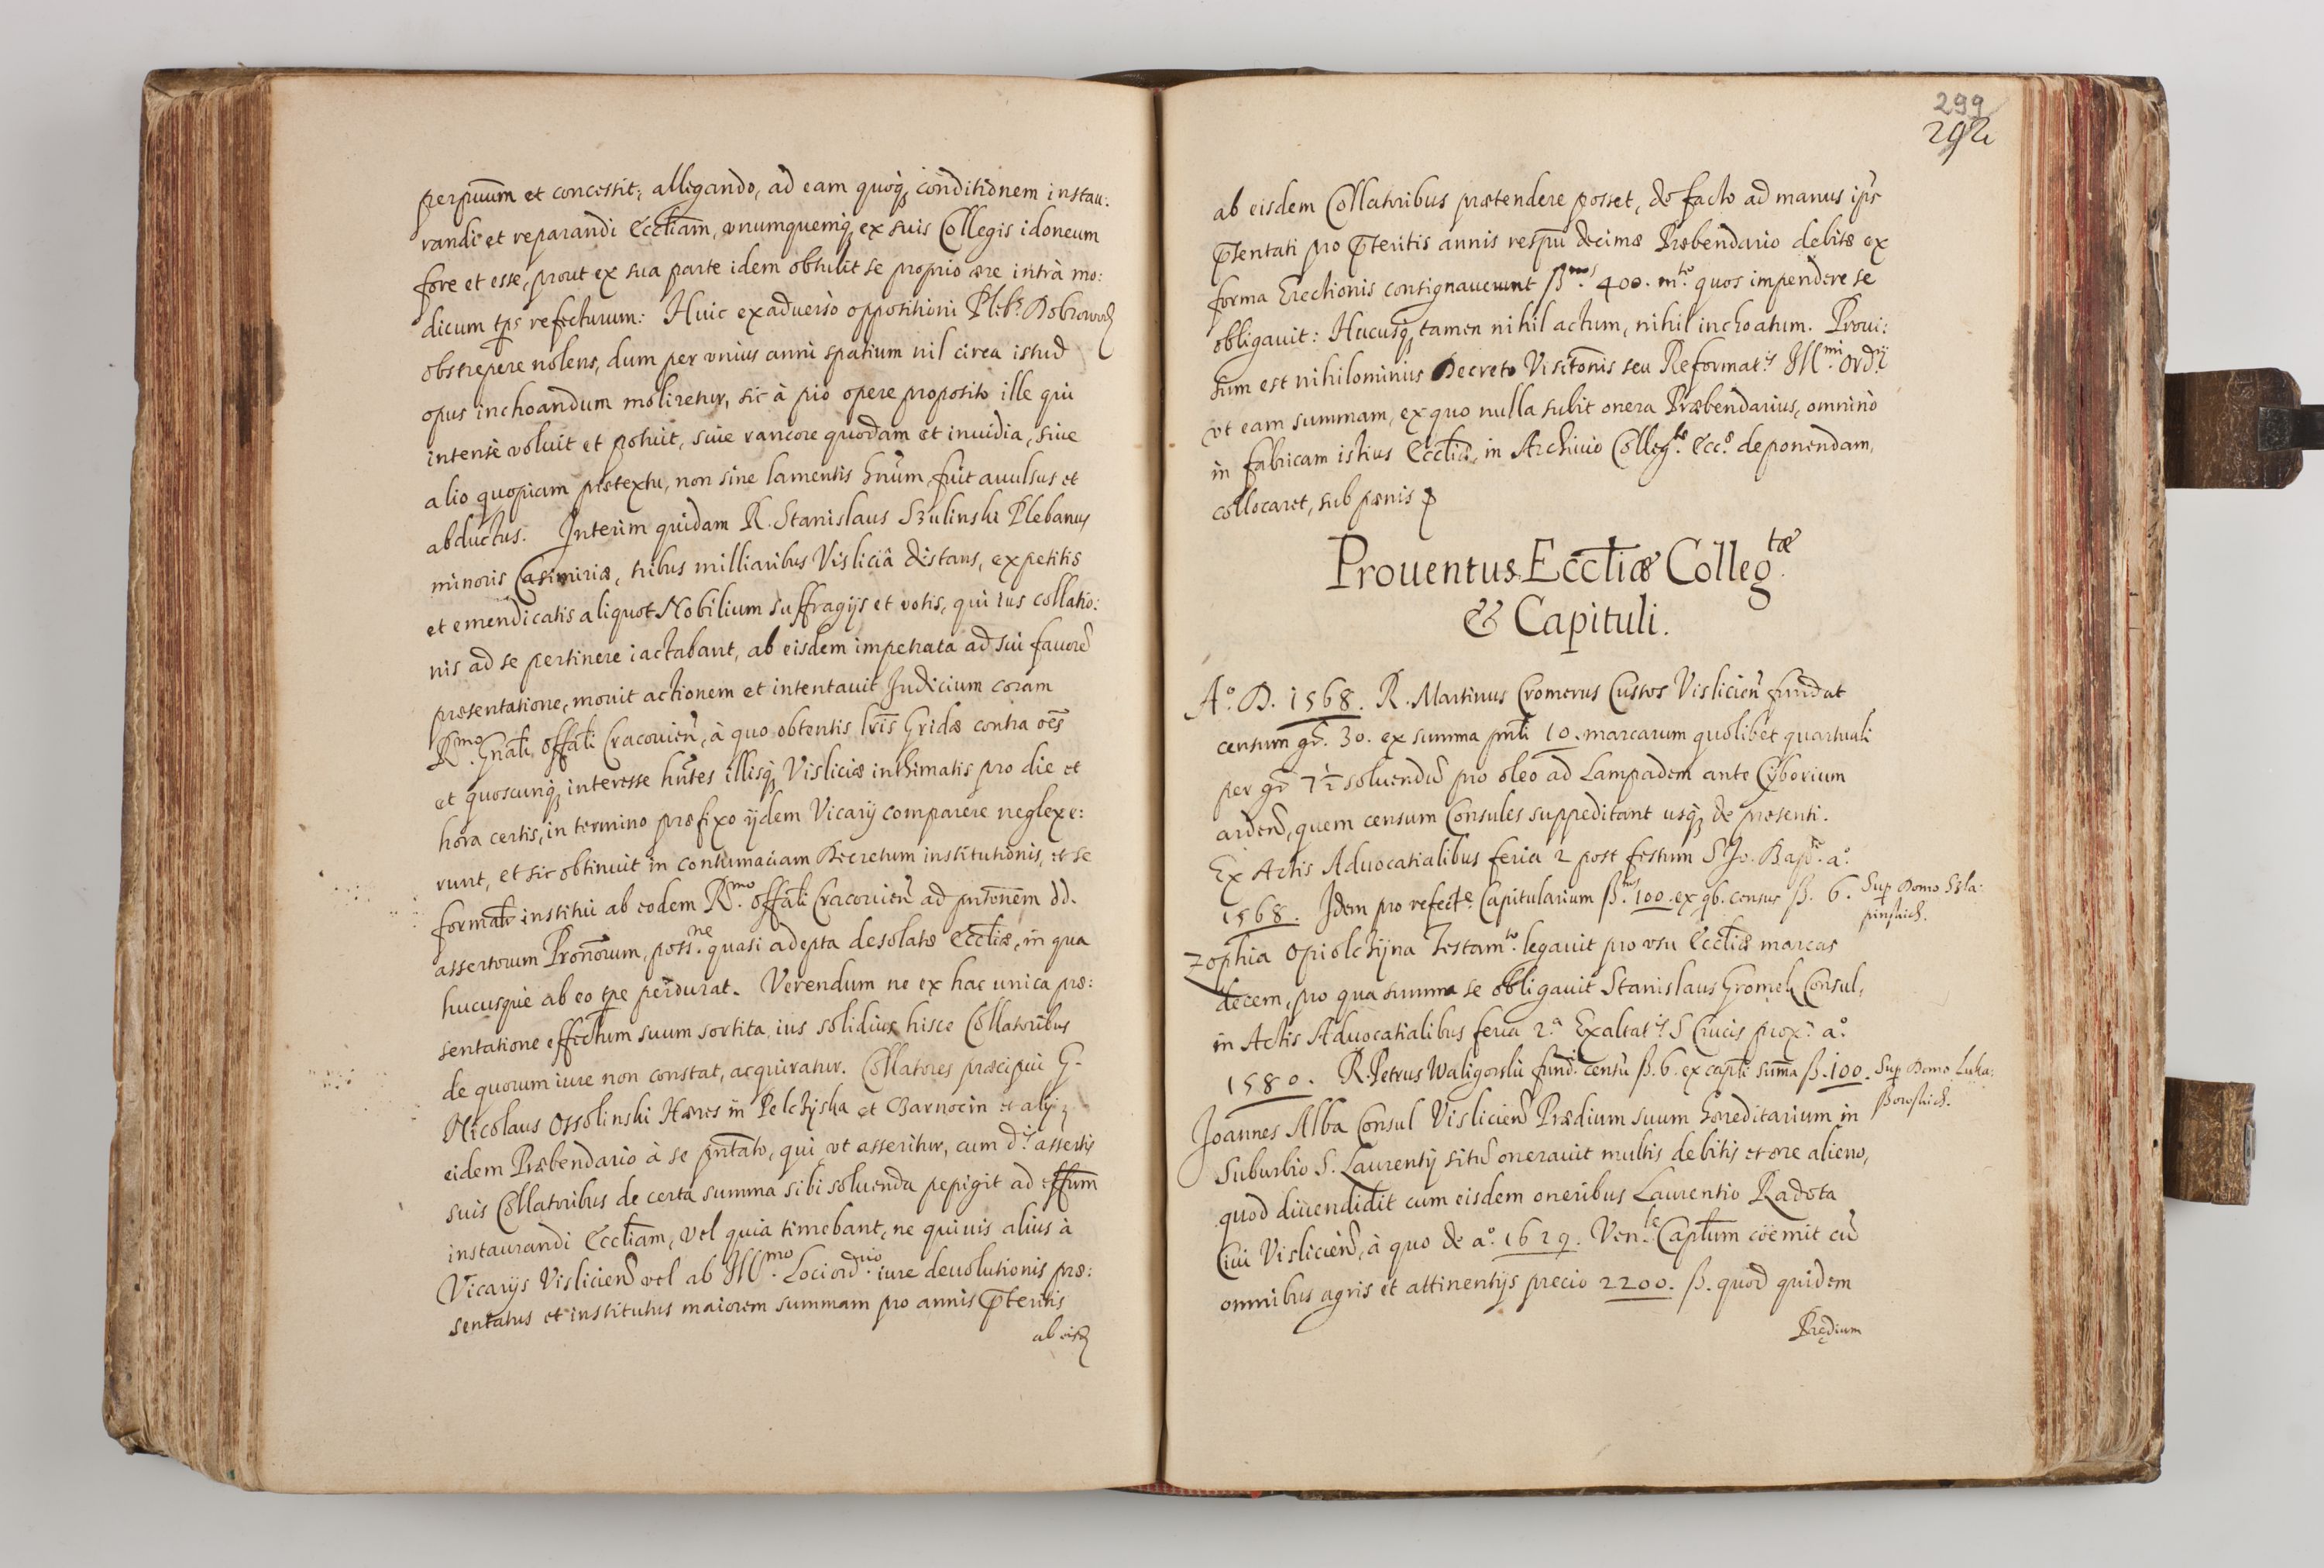 perpuūm et concessit; allegando, ad eam quoq; conditionem instau:
randi et reparandi Eccliam, vnumquemq; ex suis Collegis idoneum
fore et esse, prout ex sua parte idem obtulit se proprio ære intrà mo:
dicum tps refecturum: Huic exaduerso oppositioni Plebs
obstrepere nolens, dum per vnius anni spatium nil circa istud
opus inchoandum moliretur, sic à pio opere proposito ille qui
intensè voluit et potuit, siue rancore quodam et inuidia, siue
alio quopiam prætextu, non sine lamentis hnūm fuit auulsus et
abductus. Interim quidam R. Stanislaus Szulinski Plebanus
minoris Casimiriæ, tribus milliaribus Vislicià distans, expetitis
et emendicatis aliquot Nobilium suffragijs et votis, qui ius collatio:
nis ad se pertinere iactabant, ab eisdem impetrata ad sui fauorē
præsentatione, mouit actionem et intentauit Iudicium coram
Rmo. Gnāli Offāli Cracouieñ, à quo obtentis lrīs Gridæ contra oēs
et quoscunq; interesse hntes illisq; Visliciæ inthimatis pro die et
hora certis, in termino præfixo ijdem Vicarij comparere neglexe:
runt, et sic obtinuit in contumaciam Decretum institutionis, et se
formalr institui ab eodem Rmo. Offāli Cracouieñ ad pntōnēm dd.
assertorum Pronōrum, possne. quasi adepta desolatæ Eccliæ, in qua
hucusquè ab eo tpe perdurat. Verendum ne ex hac unica præ:
sentatione effectum suum sortita, ius solidius hisce Collatoribus
de quorum iure non constat, acquiratur. Collatores præcipui G.
Nicolaus Ossolinski Hæres in Pelchÿska et Barnocin et alij
eidem Præbendario à se pntāto, qui vt asseritur, cum ds. assertis
suis Collatoribus de certa summa sibi soluenda pepigit ad effum
instaurandi Eccliam, vel quia timebant, ne quiuis alius à
Vicarijs Vislicieñ vel ab Illmo. Lociordrio. iure deuolutionis præ:
sentatus et institutus maiorem summam pro annis pteritis
ab eisd
299
292
ab eisdem Collatoribus prætendere posset, de facto ad manus ips
ptentati pro pteritis annis respu decimæ Præbendario debitæ ex
forma Erectionis consignauerunt ß nos. 400. mto. quos impendere se
obligauit: Hucusq; tamen nihil actum, nihil inchoatum. Proui:
sum est nihilominus Decreto Visitōnis seu Reformatis. Illmi. Ordrij
vt eam summam, ex quo nulla subit onera Præbendarius, omnino
in fabricam istius Eccliæ, in Archiuio Collegtæ. Eccæ. deponendam,
collocaret, sub pænis
Prouentus Eccliæ Collegtæ.
& Capituli.
Ao. D. 1568. R. Martinus Cromerus Custos Vislicieñ fundat
censum gr. 30. ex summa pnrli 10. marcarum quolibet quartuali
per gr 7½ soluendū pro oleo ad Lampadem ante Cÿborium
ardenđ, quem censum Consules suppeditant usq; de præsenti.
Ex Actis Aduocatialibus feria 2 post festum S. Jo. Baptæ. ao.
1568. Idem pro refecte. Capitularium ß nos 100. ex qb. census ß. 6. Sup Domo Sla:
pinskich.
Zophia Opiolchÿna Testamto. legauit pro vsu Eccliæ marcas
decem, pro qua summa se obligauit Stanislaus Gromek Consul,
in Actis Aduocatialibus feria 2.a Exaltatis. S Crucis prox. ao.
1580. R. Petrus Waligorski fund. censū ß. 6. ex captli summa ß. 100. Sup Domo Luka:
ßowskich.
Joannes Alba Consul Vislicieñ Prædium suum hæreditarium in
Suburbio S. Laurentij sitū onerauit multis debitis et ære alieno,
quod diuendidit cum eisdem oneribus Laurentio Radota
Ciui Vislicieñ, à quo de ao. 1629. Venle. Captlum cöemit cū
omnibus agris et attinentijs precio 2200. ß. quod quidem
Prędium